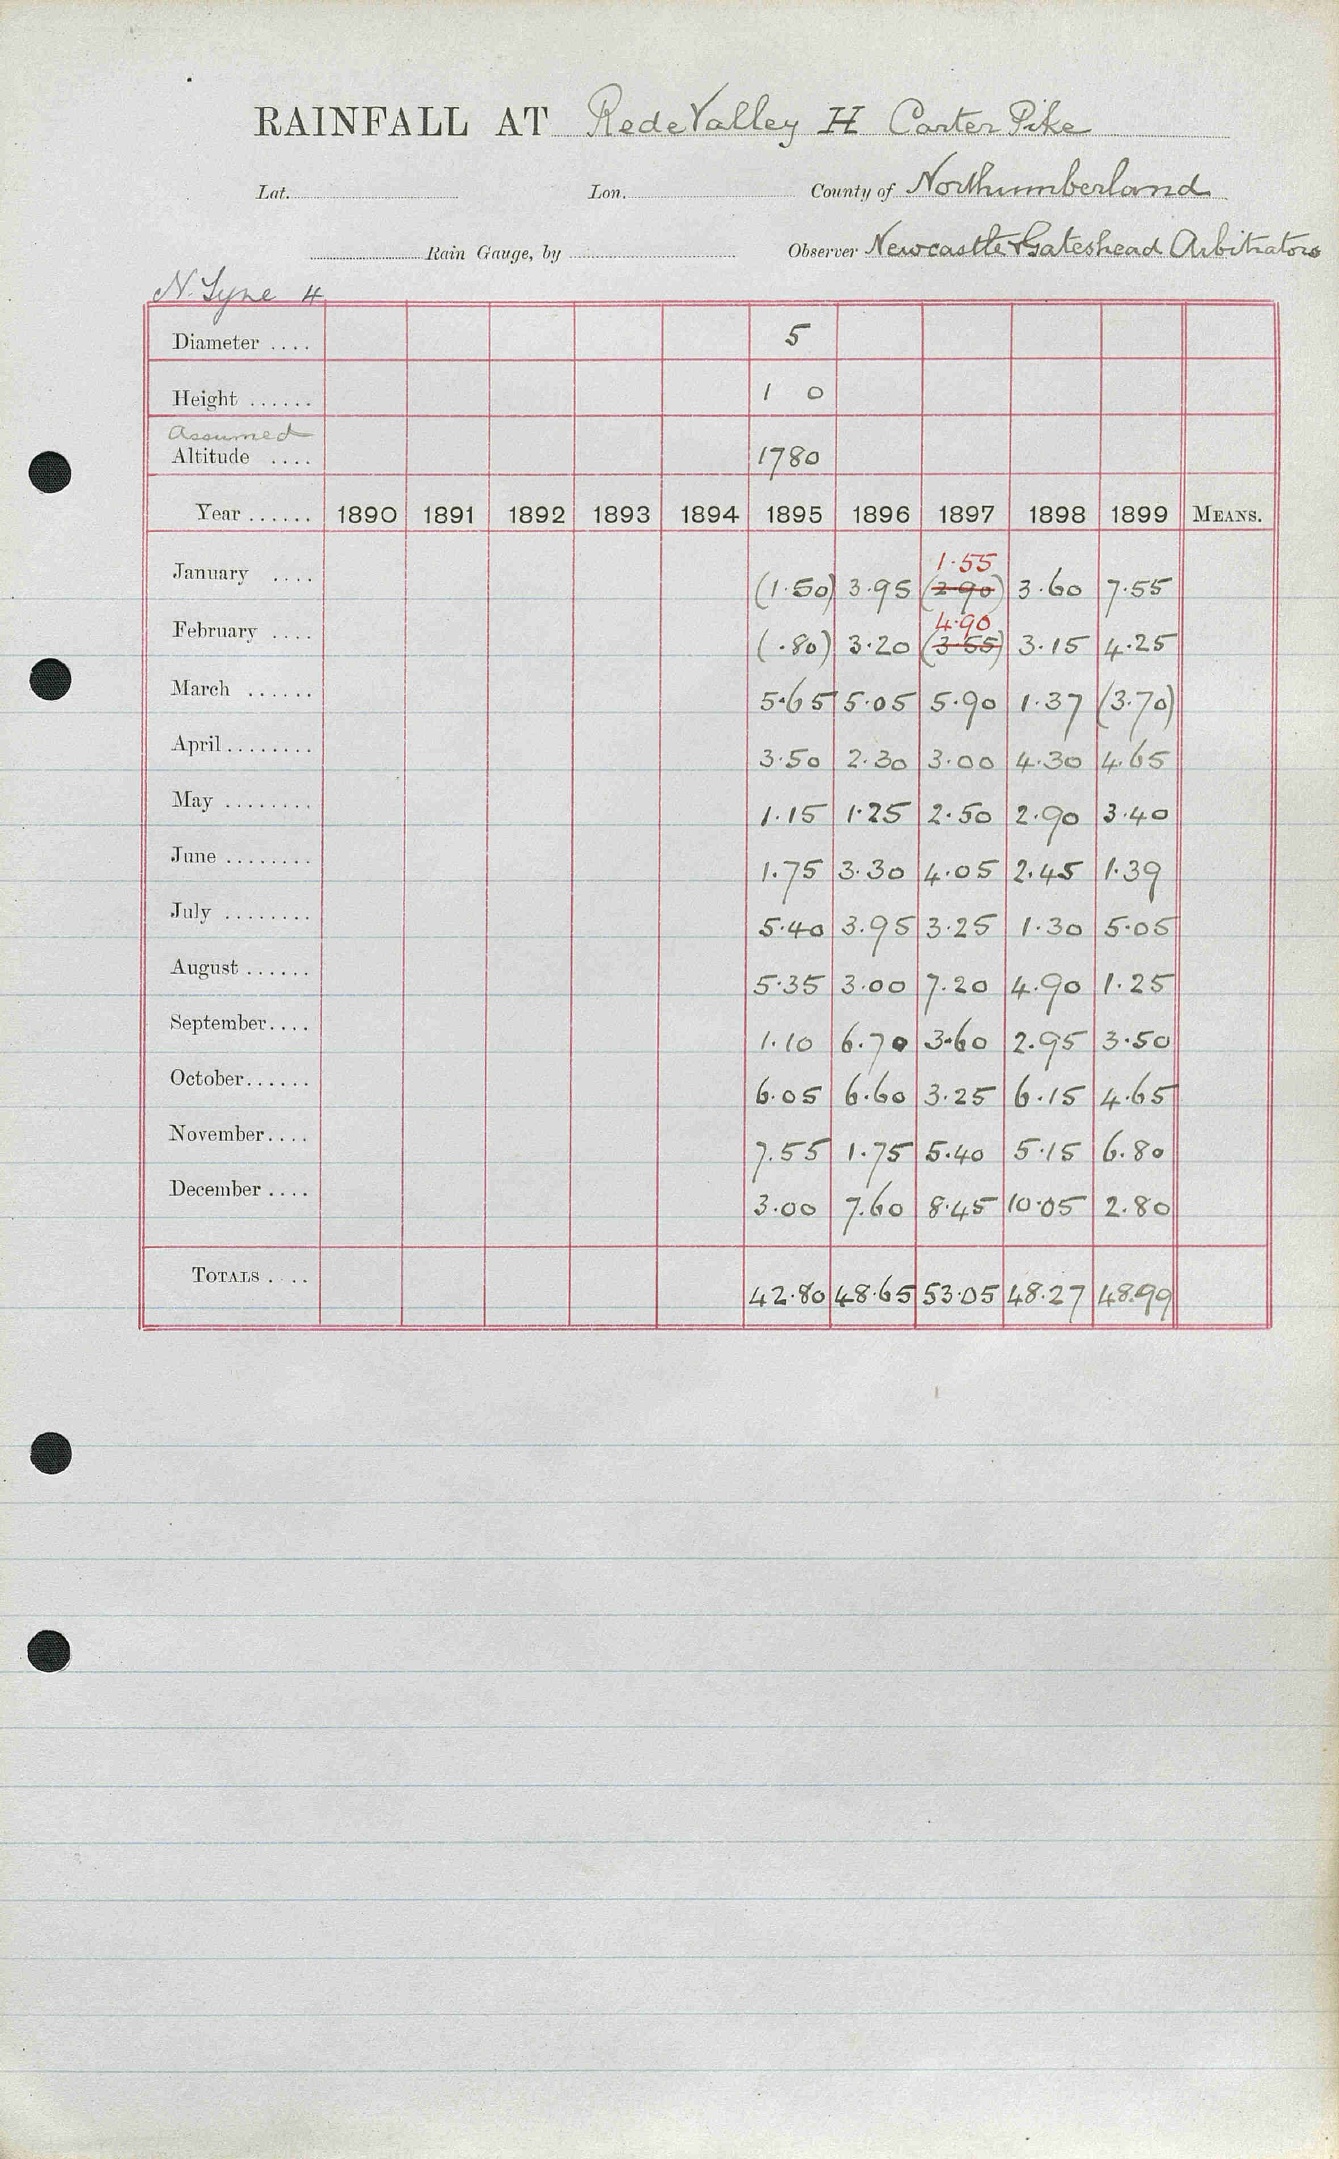 RAINFALL AT Rede Valley H Carter Pike
Lat. Lon. County of Northumberland
Rain Gauge, by Observer Newcastle & Gateshead Arbitrators
N. Tyne 4
Diameter .... 5
Height ...... 1 0
Assumed
Altitude .... 1780
Year ...... 1890 1891 1892 1893 1894 1895 1896 1897 1898 1899 MEANS.
1.55
January .... (1.50) 3.95 (2.90) 3.60 7.55
4.90
February .... (.80) 3.20 (3.55) 3.15 4.25
March ...... 5.65 5.05 5.90 1.37 (3.70)
April ........ 3.50 2.30 3.00 4.30 4.65
May ........ 1.15 1.25 2.50 2.90 3.40
June ........ 1.75 3.30 4.05 2.45 1.39
July ........ 5.40 3.95 3.25 1.30 5.05
August ...... 5.35 3.00 7.20 4.90 1.25
September.... 1.10 6.70 3.60 2.95 3.50
October...... 6.05 6.60 3.25 6.15 4.65
November.... 7.55 1.75 5.40 5.15 6.80
December .... 3.00 7.60 8.45 10.05 2.80
TOTALS .... 42.80 48.65 53.05 48.27 48.99